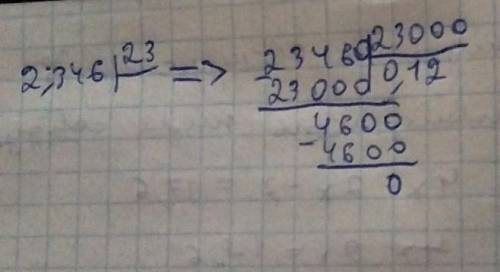 2,346 23 => 23460 23000
23000 0,12
4600
- 4600
0